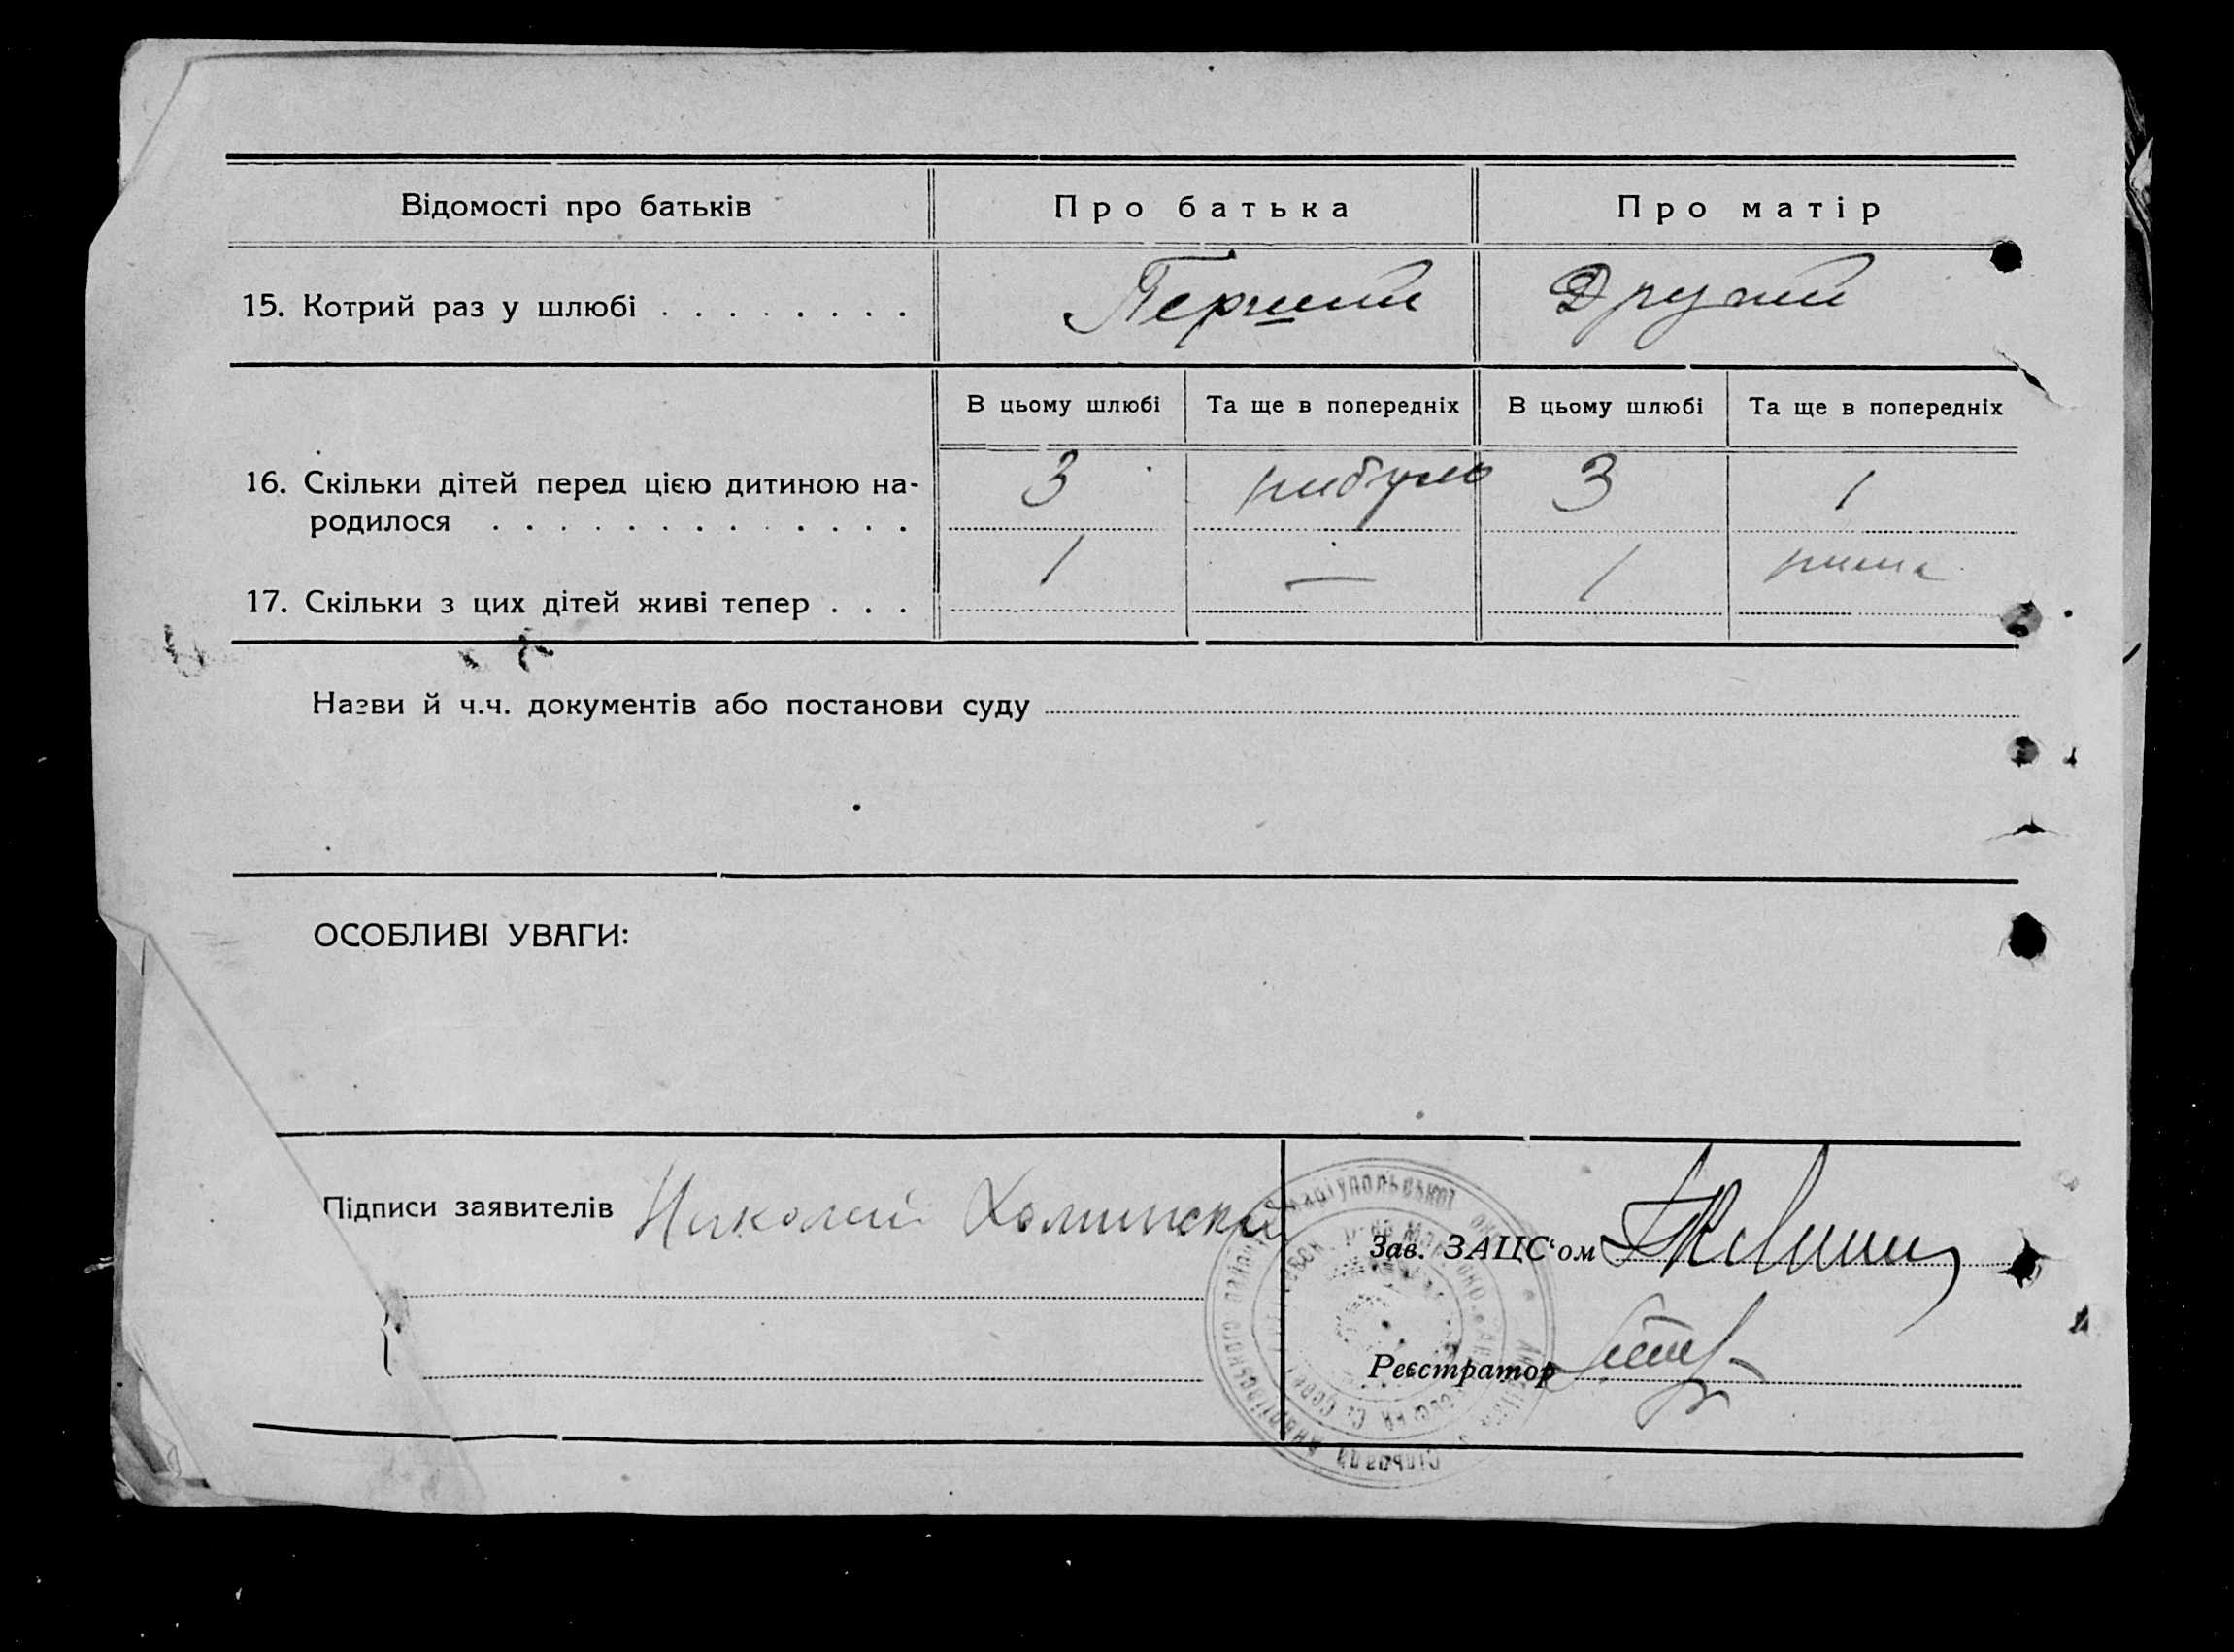 Відомості про батьків
Про батька
Про матір
15. Котрий раз у шлюбі
Перший
Другий
В цьому шлюбі
Та ще в попередніх
В цьому шлюбі
Та ще в попередніх
16. Скільки дітей перед цією дитиною на-
родилося
3
небуло
3
1
17. Скільки з цих дітей живі тепер
1
—
1
нима
Назви й ч.ч. документів або постанови суду
ОСОБЛИВІ УВАГИ:
Підписи заявителів
Николай
Зав. ЗАЦС‘ом
Реєстратор
Маріупольської
Сільрада